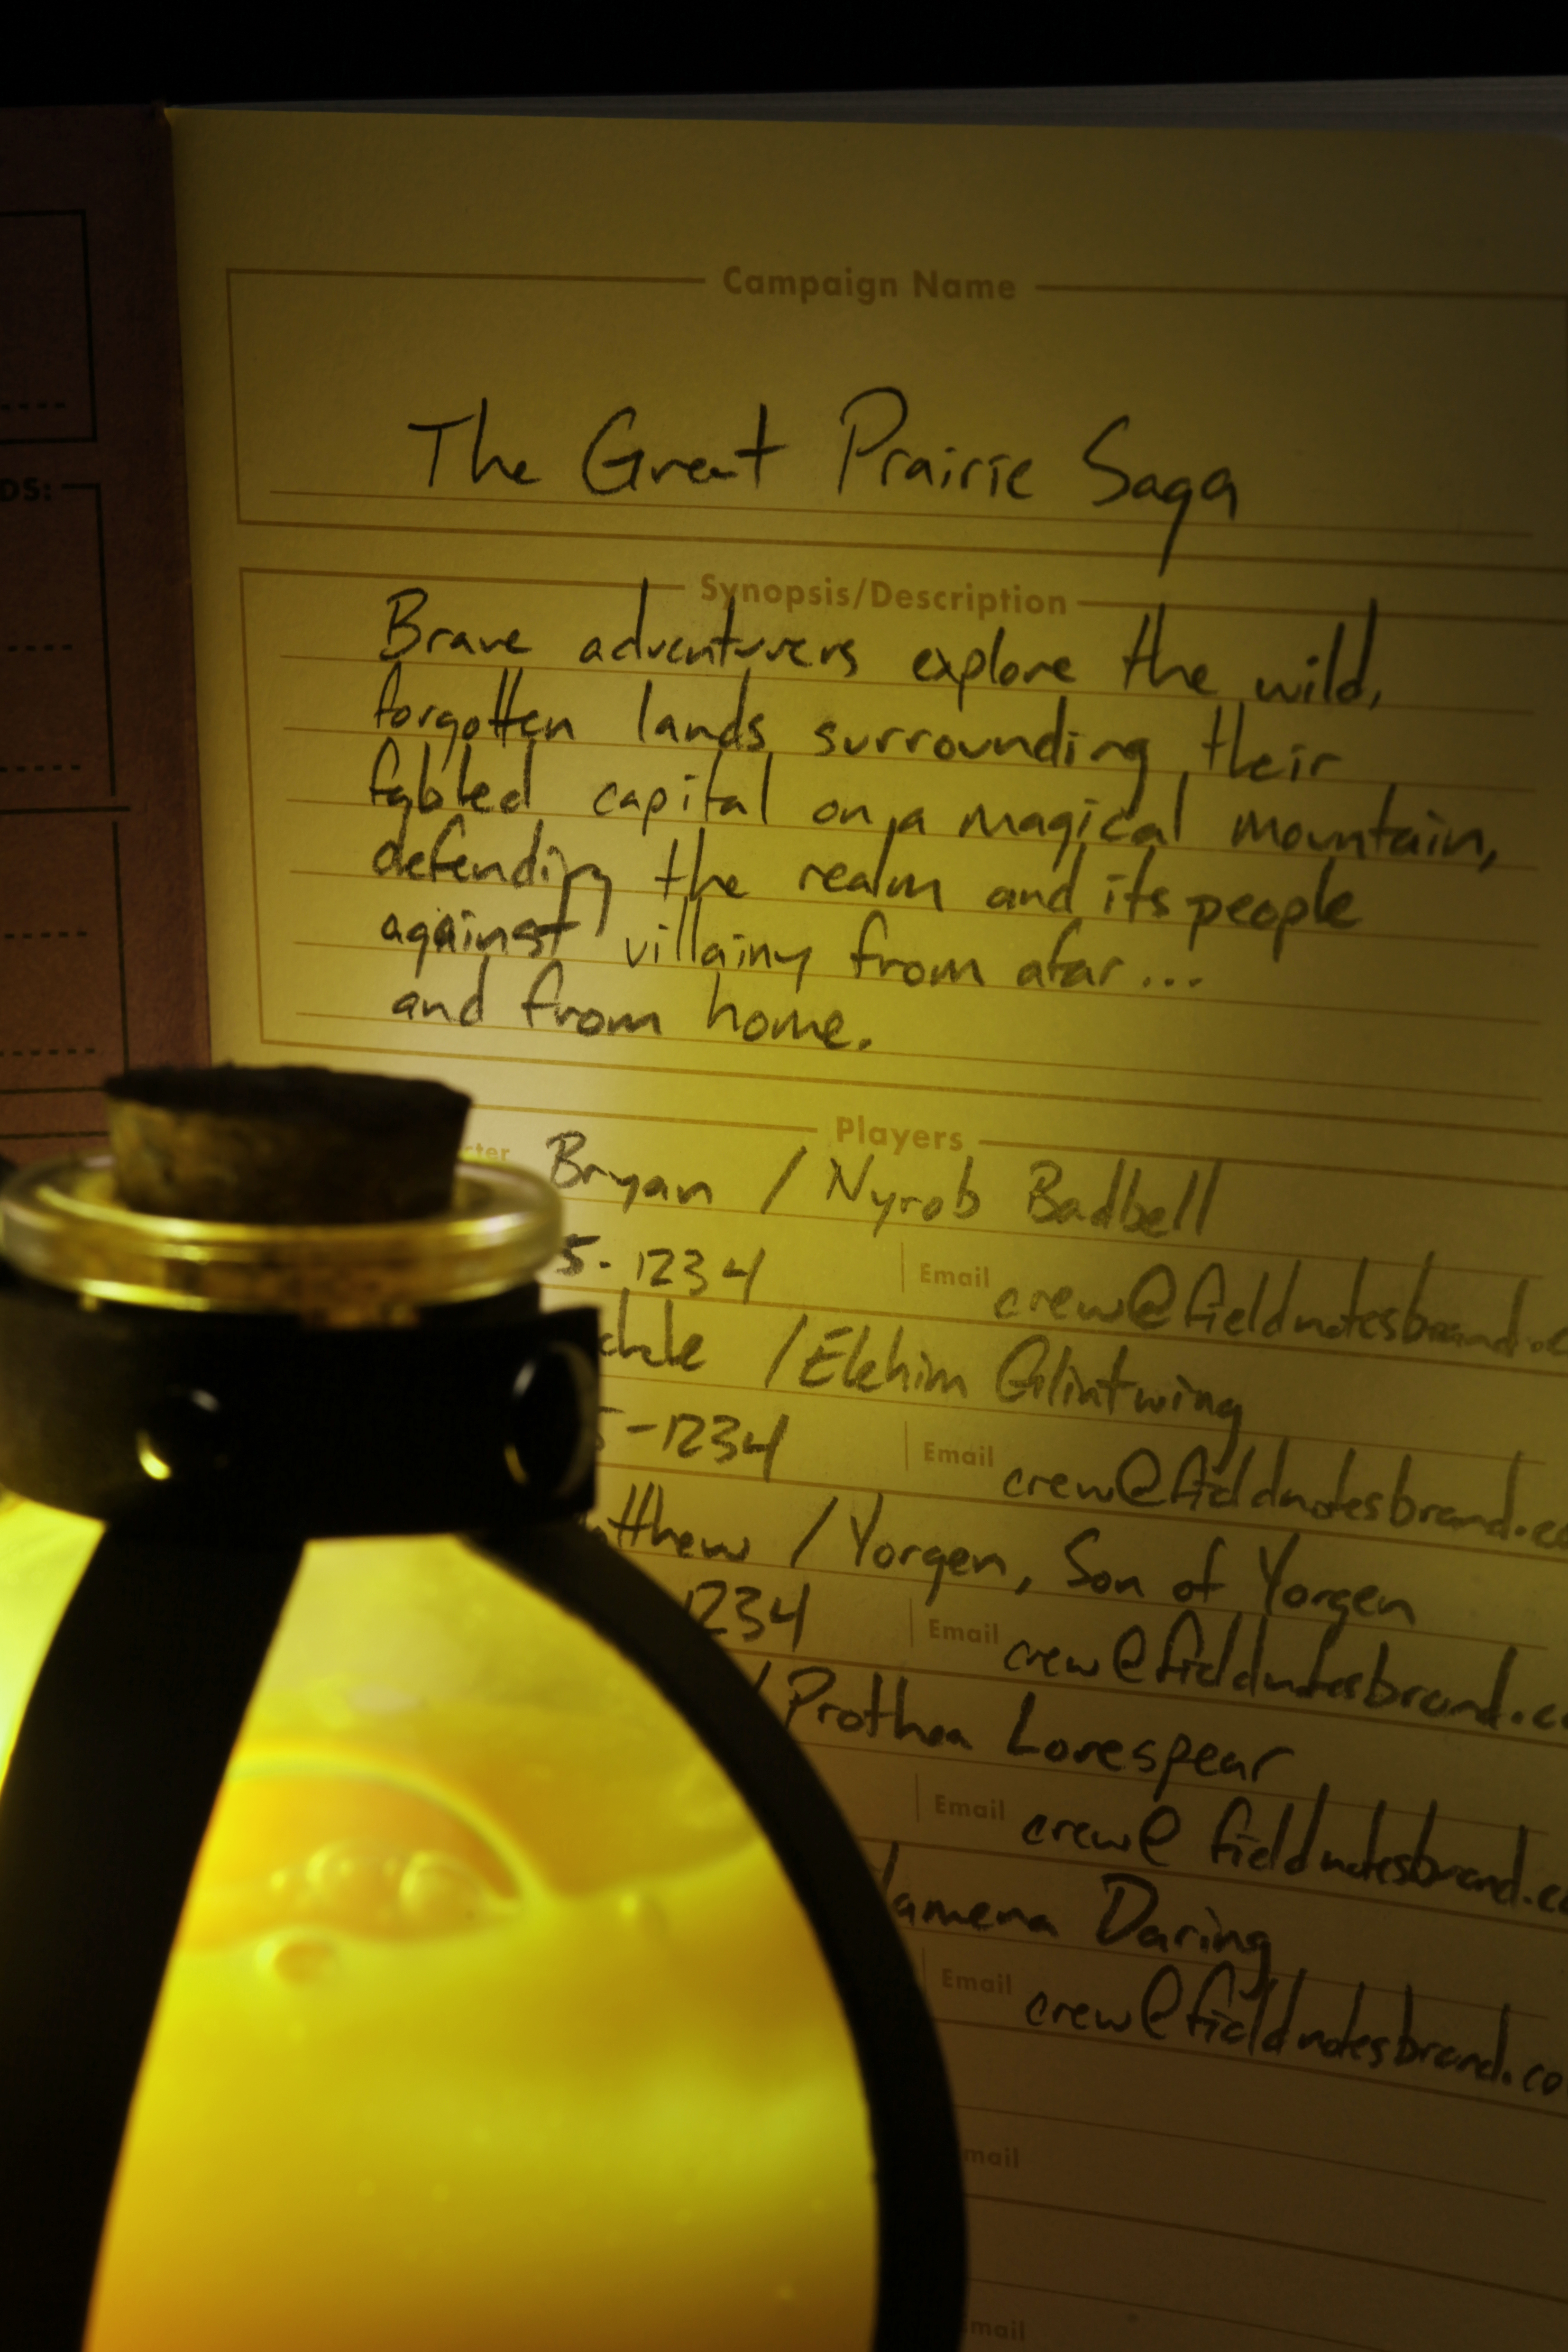 DS:
Campaign Name
The Great Prairie Saga
Synopsis/Description
Brave adventurers explore the wild,
forgotten lands surrounding their
fabled capital on a magical mountain,
defending the realm and its people
against villainy from afar...
and from home.
Players
Bryan / Nyrob Badbell
5-1234 Email crew@fieldnotesbrand.c
/ Elkhim Glintwing
5-1234 Email crew@fieldnotesbrand.co
tthew / Yorgen, Son of Yorgen
1234 Email crew@fieldnotesbrand.co
/ Prothea Lorespear
Email crew@fieldnotesbrand.co
lamena Daring
Email crew@fieldnotesbrand.co
mail
mail